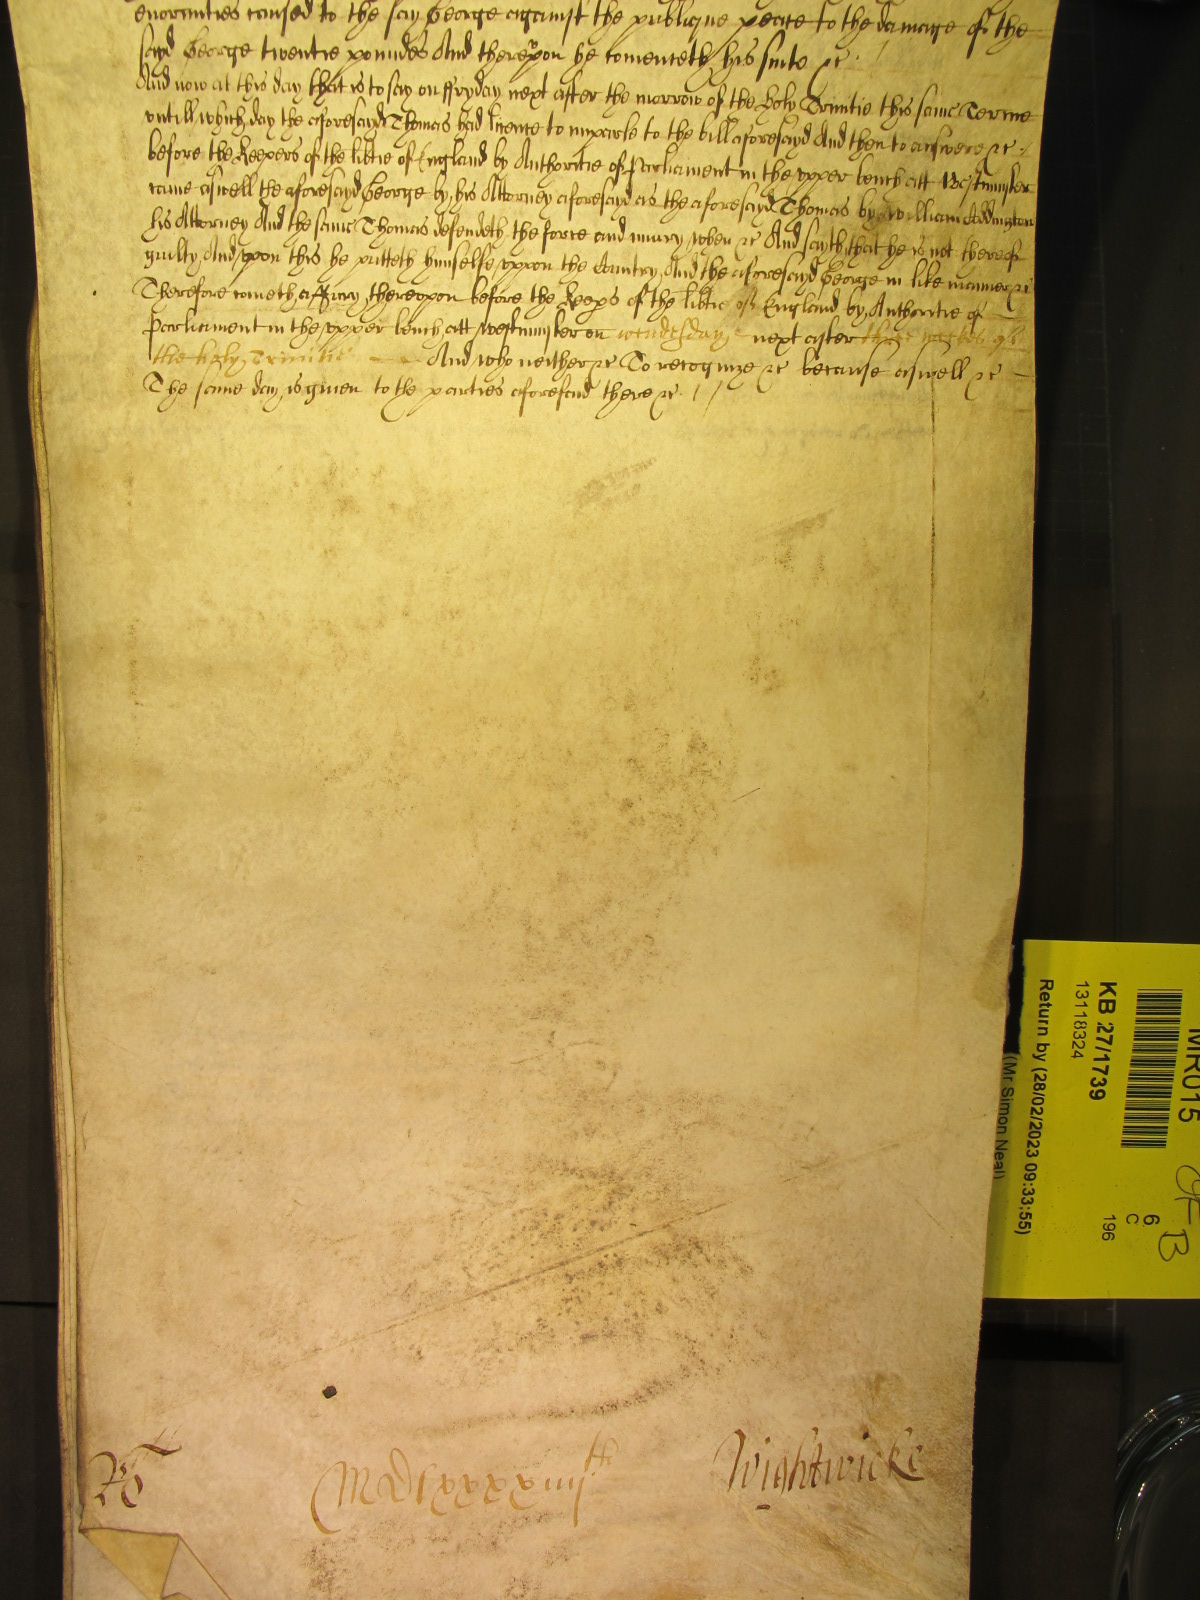 enormities caused to the say George against the publique peace to the damage of the
sayd George twentie poundes And thereupon he comenceth his suite &c
And now at this day that is to say on ffryday next after the morrow of the Holy Trinitie this same Terme
untill which day the aforesayd Thomas had licence to imparle to the bill aforesayd And then to answere &c
before the Keepers of the libtie of England by Authoritie of Parliament in the upper bench att Westminster
came aswell the aforesayd George by his Attorney aforesayd as the aforesayd Thomas by William Addington
his Attorney And the same Thomas defendeth the force and iniury when &c And sayth that he is not thereof
guilty And upon this he putteth himselfe uppon the Country And the aforesayd George in like manner &c
Therefore cometh a Jury thereupon before the Keeps of the libtie of England by Authoritie of
Parliament in the upper bench att westminster on wednesday next after three weekes of
the holy Trinitie And who neither &c To recognize &c because aswell &c
The same day is given to the parties aforesaid there &c
Ro
MDlxxxxiiii th
Wightwicke
MR015
KB 27/1739
13118324
Return by (28/02/2023 09:33:55)
(Mr Simon Neal)
6
C
196